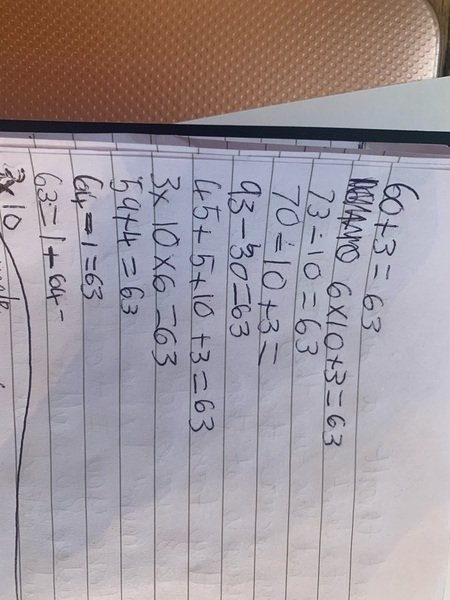 60+3=63
6x10+3=63
73-10=63
70-10+3=
93-30=63
45+5+10+3=63
3x10x6=63
59+4=63
64-1=63
63=1+64-
3x10